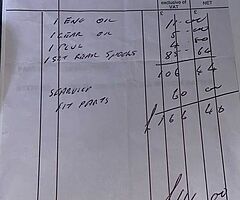 exclusive of VAT
NET
£ £
1 ENG OIL 12-00
1 GEAR OIL 5-00
1 PLUG 4 50
1 SET REAR SHOES 85-
106 44
SERVICE 60 00
FIT PARTS
£ 166 46